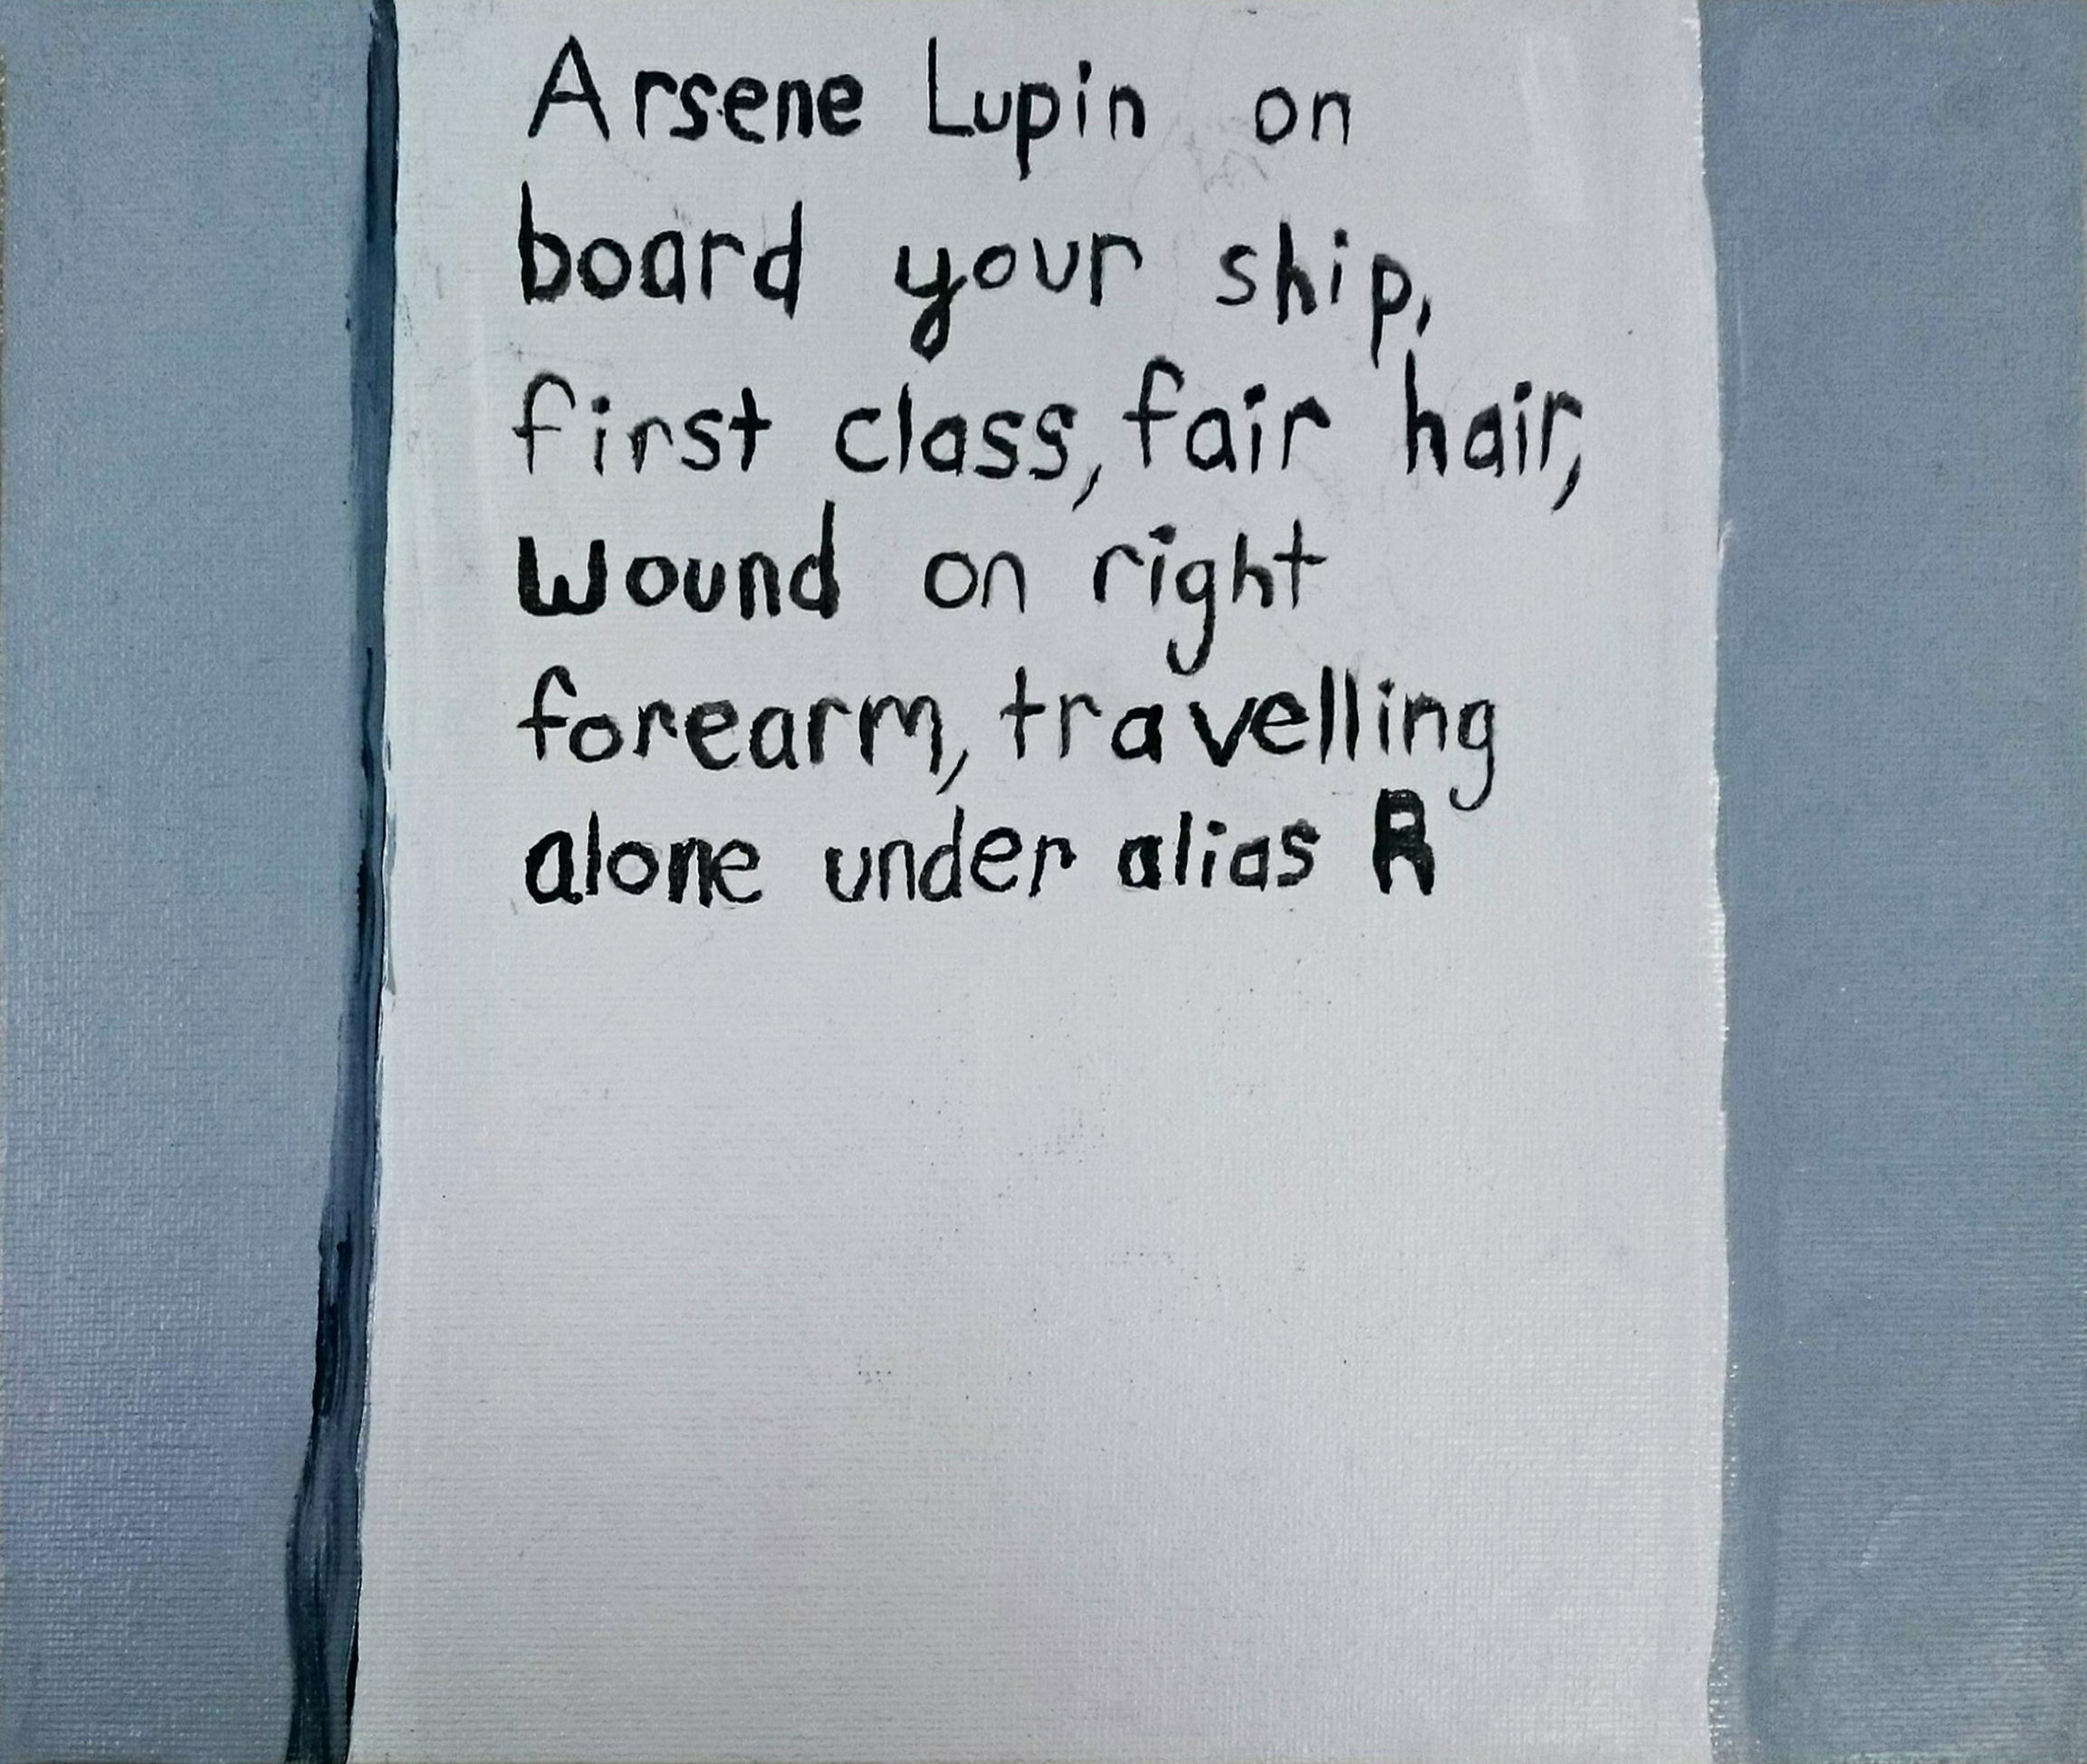 Arsene Lupin on
board your ship,
first class, fair hair,
wound on right
forearm, travelling
alone under alias R